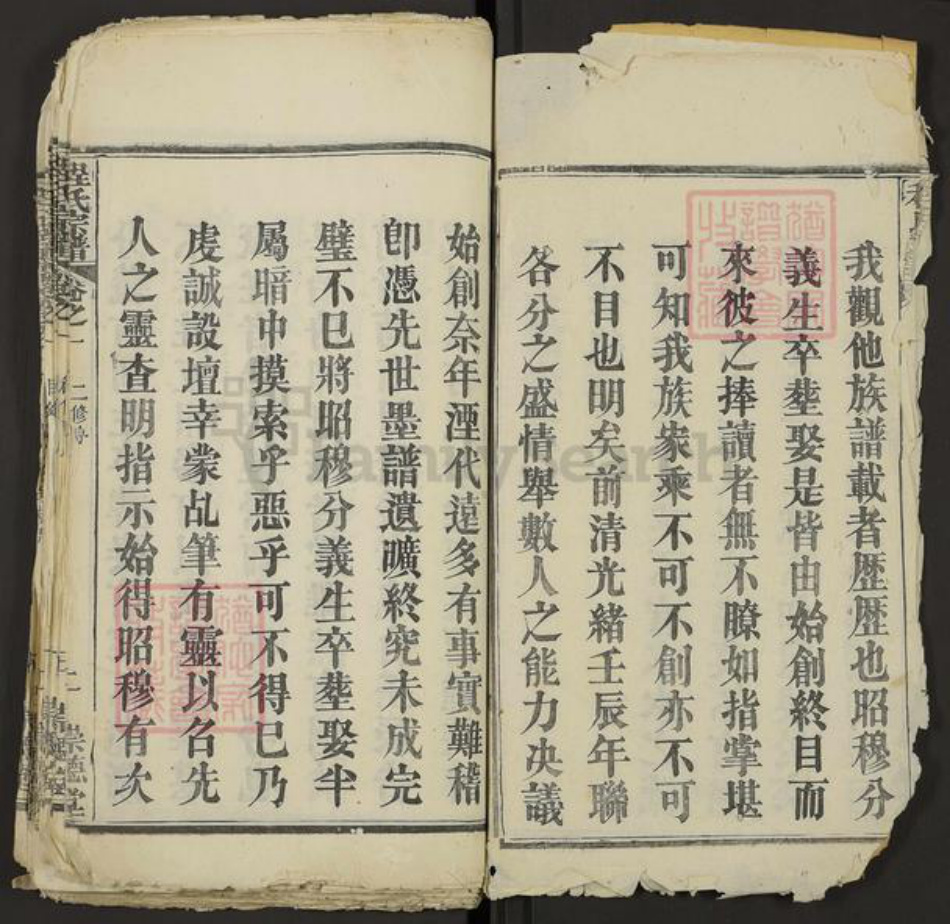 我觀他族譜載者歷歷也昭穆分
義生卒塟娶是皆由始創終目而
來彼之捧讀者無不瞭如指掌堪
可知我族家乘不可不創亦不可
不目也明矣前清光緒壬辰年聯
各分之盛情舉數人之能力決議
始創奈年湮代遠多有事實難稽
卽憑先世墨譜遺曠終究未成完
璧不已將昭穆分義生卒塟娶半
屬暗中摸索乎惡乎可不得已乃
虔誠設壇幸蒙乩筆有靈以名先
人之靈查明指示始得昭穆有次
程氏宗譜 卷之一
二修
崇德堂
familysearch